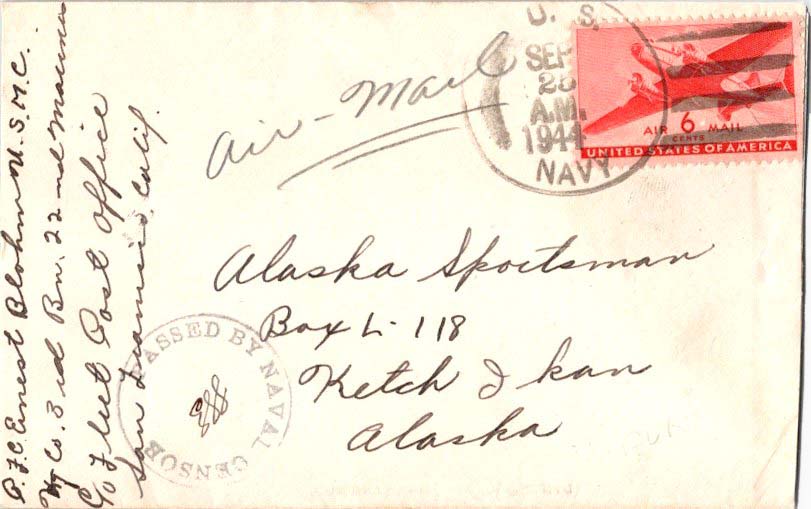 P.F.C. Ernest Blohm U.S.M.C.
Hq Co. 3rd Bn. 22nd Marines
C/o Fleet Post Office
San Francisco, Calif.
Air-Mail
U. S.
SEP
25
A.M.
1944
NAVY
AIR 6 MAIL
CENTS
UNITED STATES OF AMERICA
Alaska Sportsman
Box L-118
Ketch I kan
Alaska
PASSED BY NAVAL CENSOR